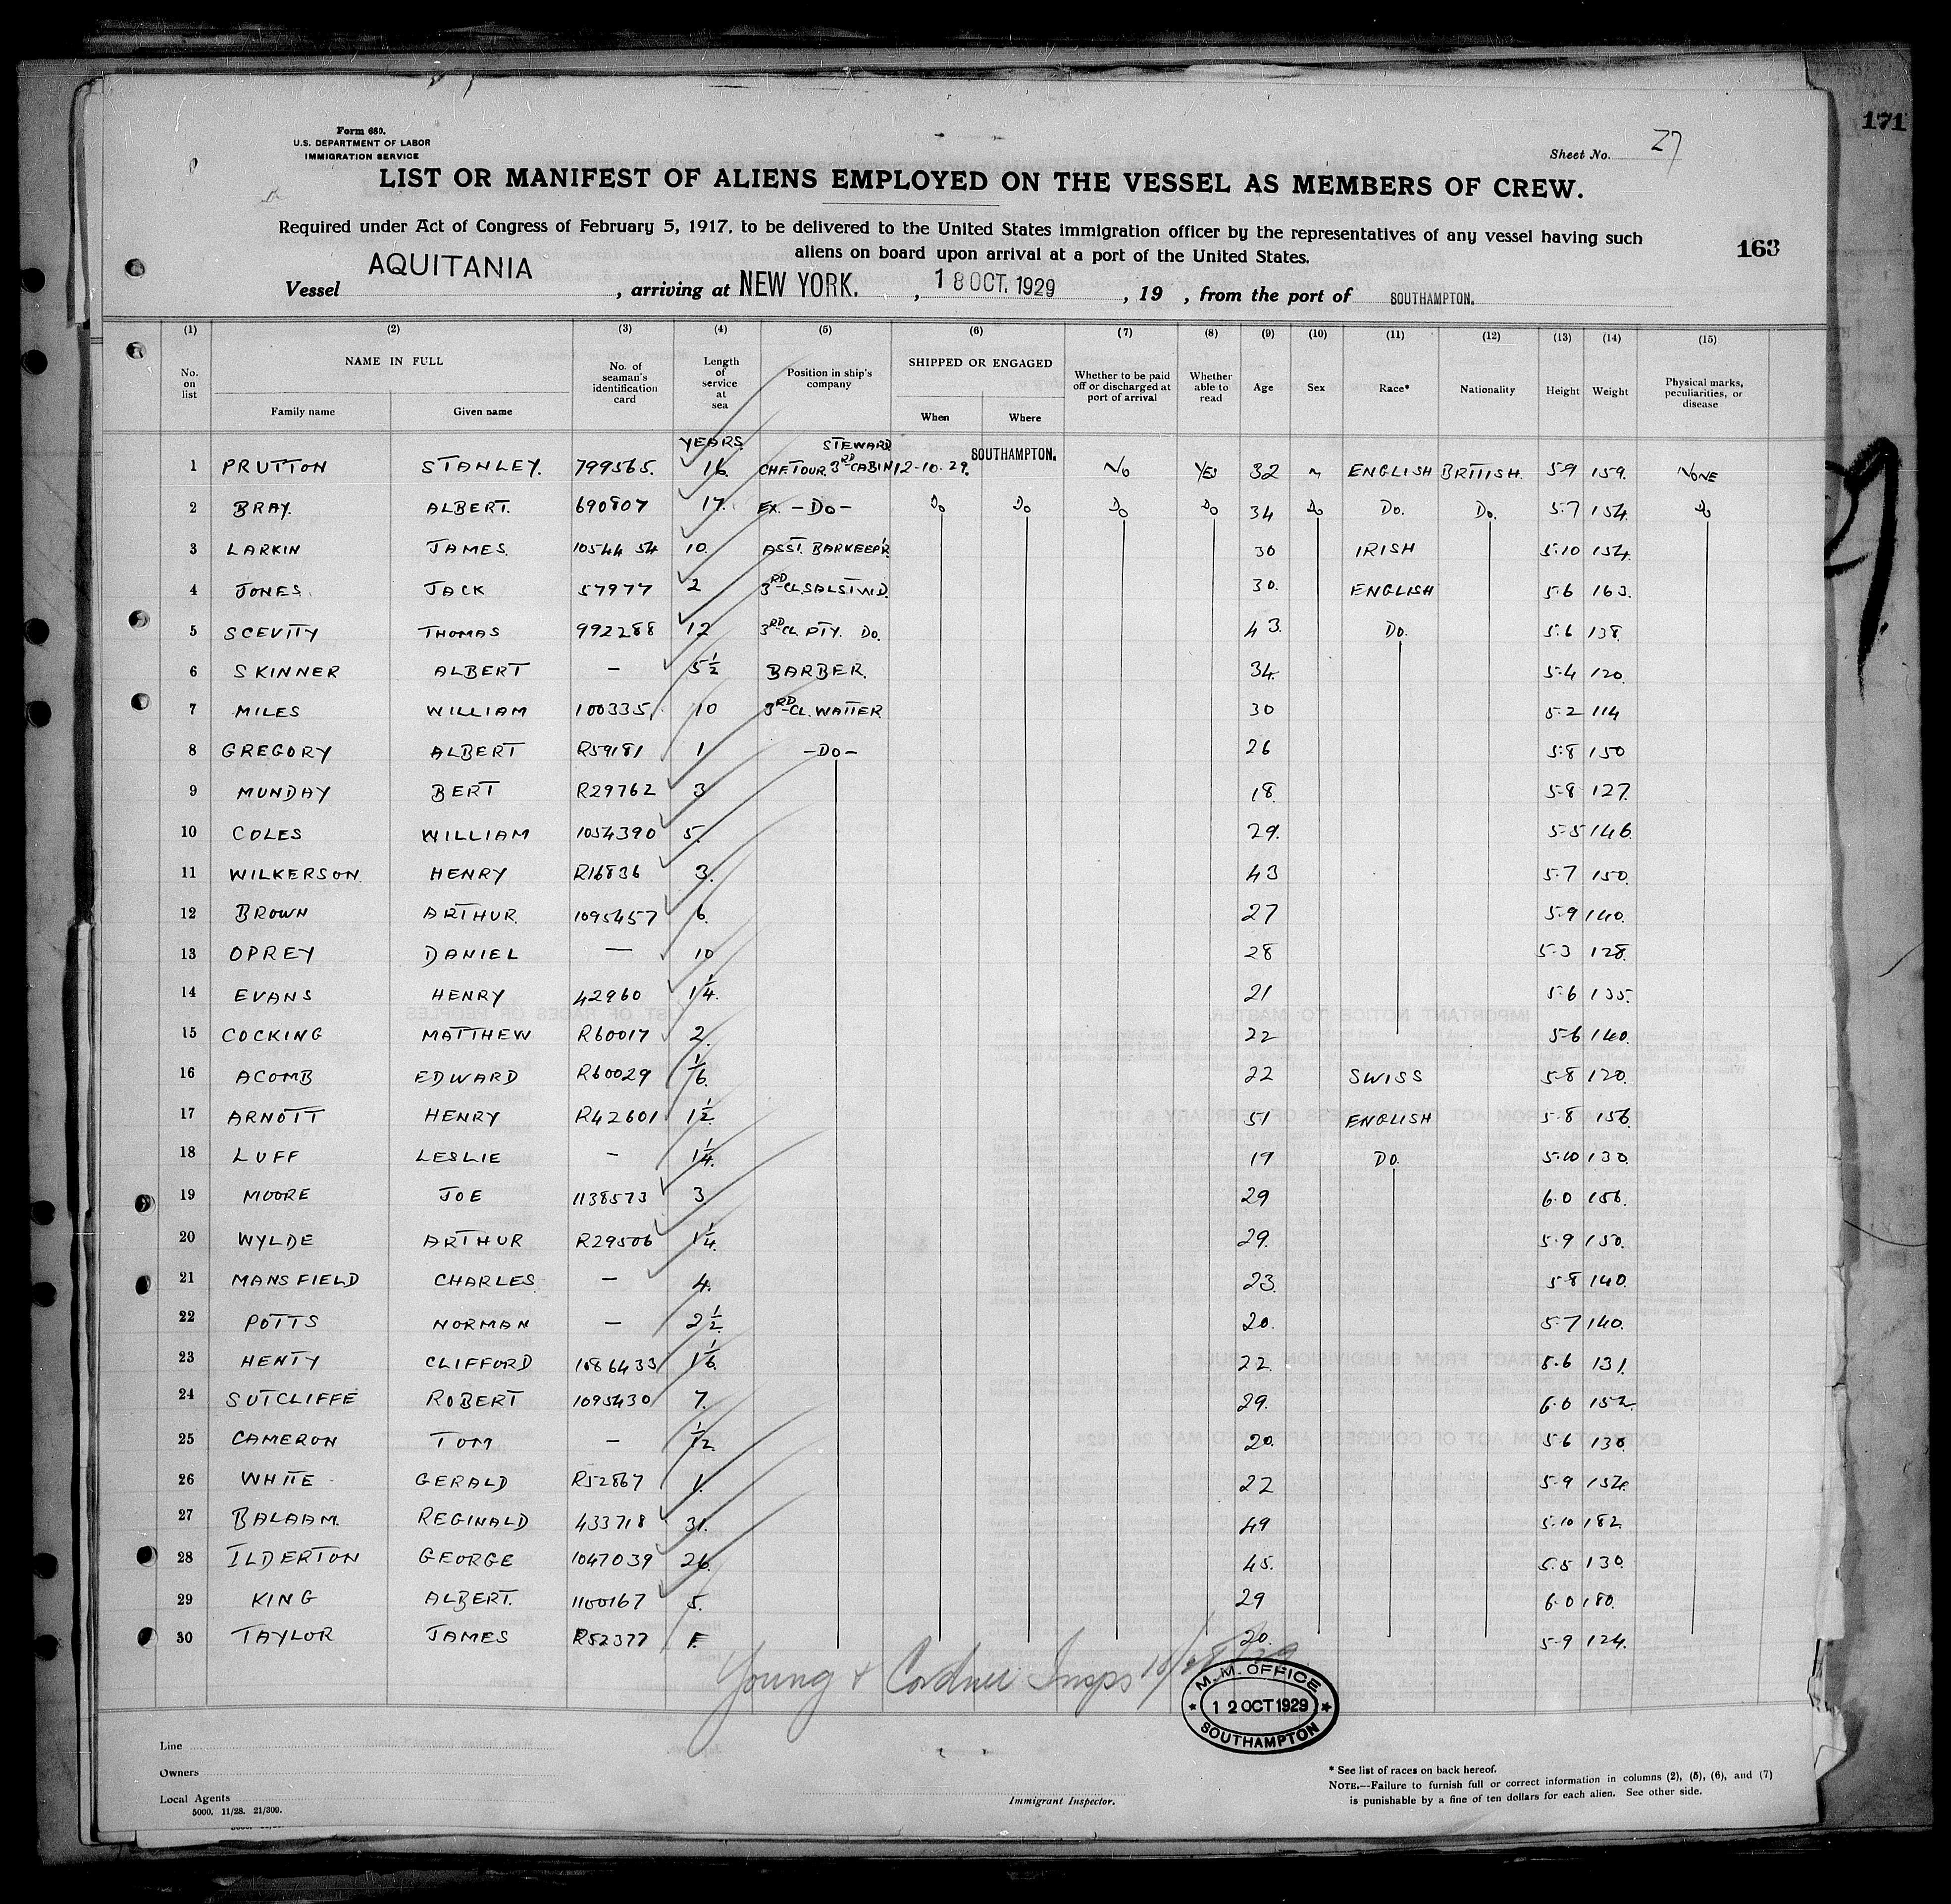 171
Form 689.
U.S. DEPARTMENT OF LABOR
IMMIGRATION SERVICE
Sheet No. 27
LIST OR MANIFEST OF ALIENS EMPLOYED ON THE VESSEL AS MEMBERS OF CREW.
Required under Act of Congress of February 5, 1917, to be delivered to the United States immigration officer by the representatives of any vessel having such
aliens on board upon arrival at a port of the United States.
163
Vessel AQUITANIA, arriving at NEW YORK., 18 OCT. 1929, 19 , from the port of SOUTHAMPTON.
(1) (2) (3) (4) (5) (6) (7) (8) (9) (10) (11) (12) (13) (14) (15)
No. on list NAME IN FULL Family name Given name No. of seaman's identification card Length of service at sea Position in ship's company SHIPPED OR ENGAGED When Where Whether to be paid off or discharged at port of arrival Whether able to read Age Sex Race* Nationality Height Weight Physical marks, peculiarities, or disease
YEARS STEWARD
1 PRUTTON STANLEY. 799565. 16 CHF.TOUR.3RD CABIN 12-10-29. SOUTHAMPTON. NO YES 32 M ENGLISH BRITISH. 5-9 159. NONE
2 BRAY. ALBERT. 690807 17. EX. -DO- DO DO DO DO 34 DO DO. DO. 5:7 154. DO
3 LARKIN JAMES. 1054454 10. ASST. BARKEEP'R 30 IRISH 5:10 154.
4 JONES. JACK 57977 2 3RD CL SALSTWD. 30. ENGLISH 5:6 163.
5 SCEVITY THOMAS 992288 12 3RD CL. PTY. DO. 43. DO. 5:6 138.
6 SKINNER ALBERT - 5 1/2 BARBER. 34. 5-4 120.
7 MILES WILLIAM 100335 10 3RD CL. WAITER 30 5-2 114
8 GREGORY ALBERT R59181 1 -DO- 26 5:8 150
9 MUNDAY BERT R29762 3 18. 5-8 127.
10 COLES WILLIAM 1054390 5. 29. 5-5 146.
11 WILKERSON HENRY R16836 3. 43 5-7 150.
12 BROWN ARTHUR. 1095457 6. 27 5-9 140.
13 OPREY DANIEL - 10 28 5-3 128.
14 EVANS HENRY 42960 1/4. 21 5-6 135.
15 COCKING MATTHEW R60017 2. 22 5-6 140.
16 ACOMB EDWARD R60029 1/6. 22 SWISS 5-8 120.
17 ARNOTT HENRY R42601 1 1/2. 51 ENGLISH 5-8 156.
18 LUFF LESLIE - 1/4. 19 DO. 5-10 130.
19 MOORE JOE 1138573 3 29 6.0 156.
20 WYLDE ARTHUR R29506 1/4. 29. 5-9 150.
21 MANSFIELD CHARLES. - 4. 23. 5-8 140.
22 POTTS NORMAN - 2 1/2. 20. 5-7 140.
23 HENTY CLIFFORD 1086433 1/6. 22. 5-6 131.
24 SUTCLIFFE ROBERT 1095430 7. 29. 6-0 152.
25 CAMERON TOM - 1/2 20. 5-6 130.
26 WHITE GERALD R52867 1. 22 5-9 154.
27 BALAAM. REGINALD 433718 31. 49 5-10 182.
28 ILDERTON GEORGE 1047039 26. 45. 5-5 130.
29 KING ALBERT. 1100167 5. 29 6-0 180.
30 TAYLOR JAMES R52377 F. 20. 5-9 124.
Young + Cordner Insps
M.M. OFFICE
12 OCT 1929
SOUTHAMPTON
Line
Owners
Local Agents
5000. 11/28. 21/309.
Immigrant Inspector.
* See list of races on back hereof.
NOTE.—Failure to furnish full or correct information in columns (2), (5), (6), and (7)
is punishable by a fine of ten dollars for each alien. See other side.